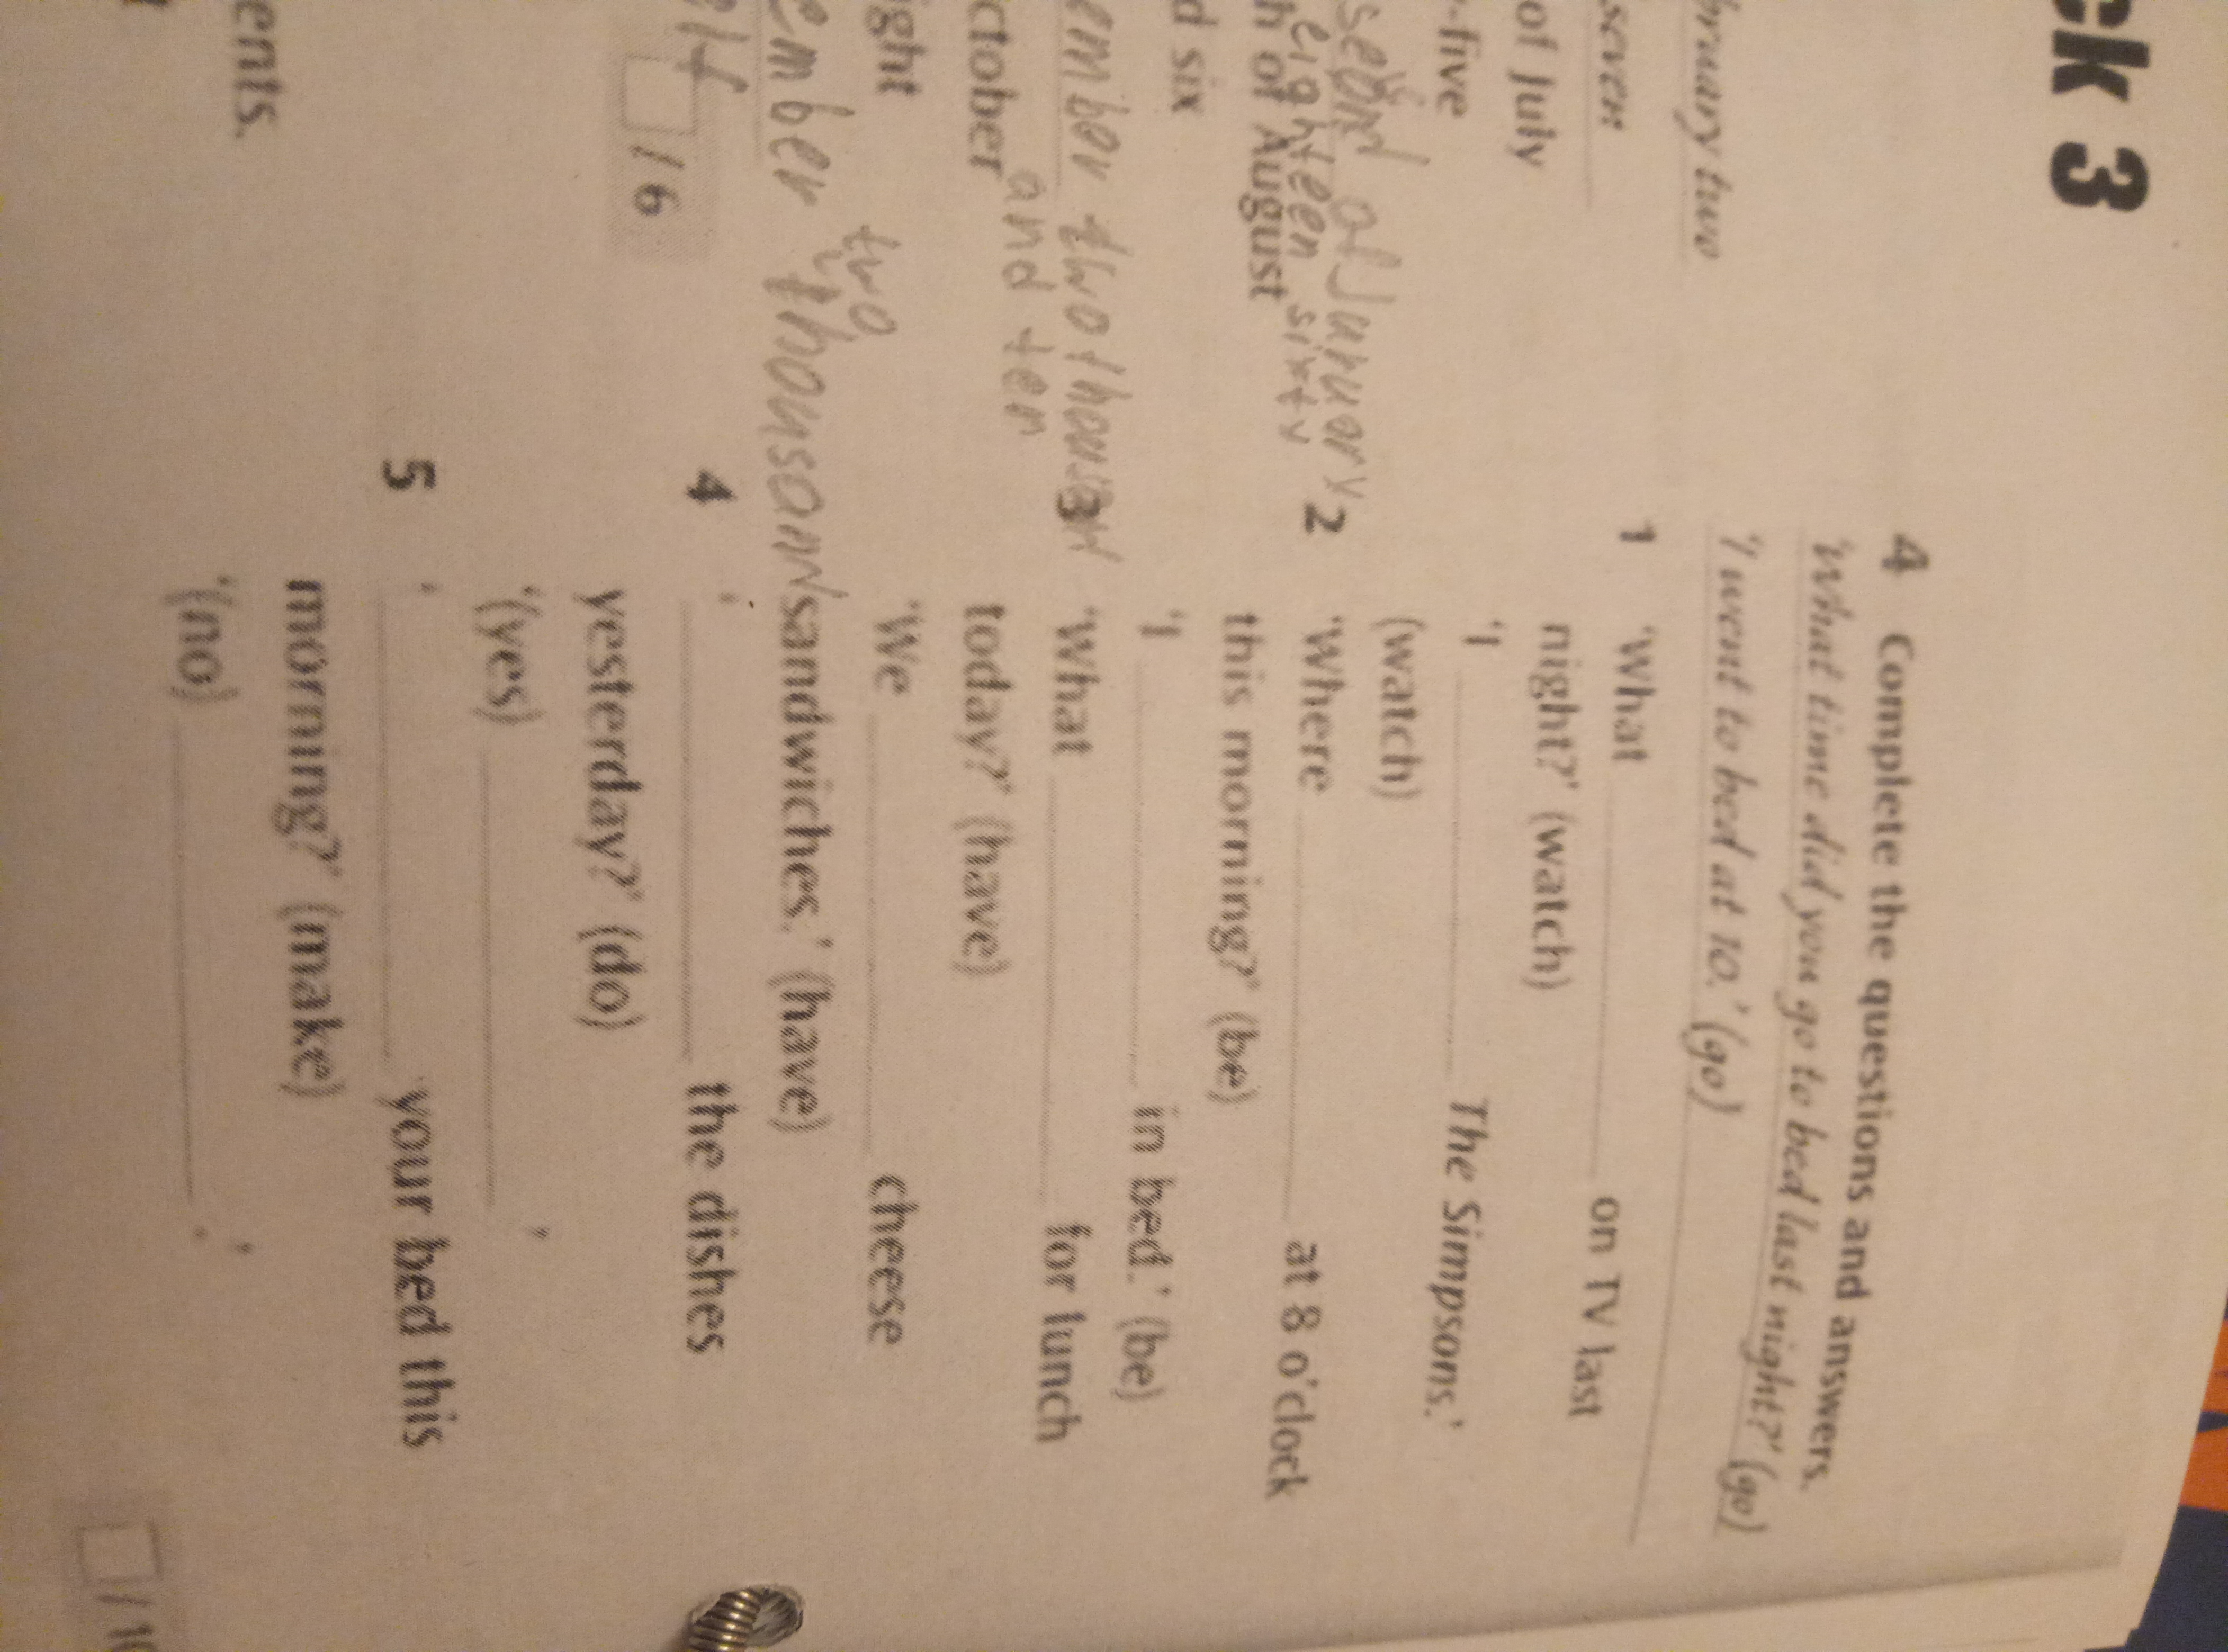 ck 3
bruary two
seven
of July
-five
second of Januar y
eighteen sixty
h of August
d six
ember two thousand
and ten
ctober
two
ight
ember thousand
elf
/ 6
ents.
4 Complete the questions and answers.
'What time did you go to bed last night?' (go)
'I went to bed at 10.' (go)
1 'What ______ on TV last
night?' (watch)
'I ______ The Simpsons.'
(watch)
2 'Where ______ at 8 o'clock
this morning?' (be)
'I ______ in bed.' (be)
3 'What ______ for lunch
today?' (have)
'We ______ cheese
sandwiches.' (have)
4 '______ the dishes
yesterday?' (do)
'(yes) ______'
5 '______ your bed this
morning?' (make)
'(no) ______.'
/ 10